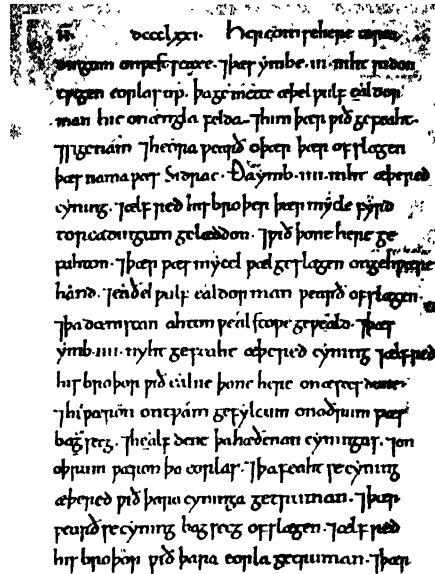 dccclxxi. Her com se here to rea
dingum on ƿestseaxe. ⁊ þæs ymbe .iii. niht ridon
tƿegen eorlas up. þa gemette æþelƿulf ealdor
man hie on ængla felda. ⁊ him þær ƿið gefeaht.
⁊ sige nam ⁊ heora ƿearð oþær þær ofslægen
þæs nama ƿæs Sidrac. Ða ymb .iiii. niht æþered
cyning. ⁊ ælfred his broþer þær mycle fyrd
to readingum gelæddon. ⁊ ƿið þone here ge
fuhton. ⁊ þær ƿæs mycel ƿæl geslægen on gehƿæþere
hand. ⁊ eaðelƿulf ealdorman ƿearð ofslægen.
⁊ þa dæniscan ahton ƿælstoƿe geƿeald. ⁊ þæs
ymb .iiii. nyht gefeaht æþered cyning ⁊ ælfred
his broþor ƿið ealne þone here on æscesdune
⁊ hi ƿæron on tƿam gefylcum on oðrum ƿæs
bagsecg. ⁊ healfdene þa hæðenan cyningas. ⁊ on
oþrum ƿæron þa eorlas. ⁊ þa feaht se cyning
æþered ƿið þara cyninga getruman. ⁊ þær
ƿearð se cyning bagsecg ofslægen. ⁊ ælfred
his broþor ƿið þara eorla getruman. ⁊ þær